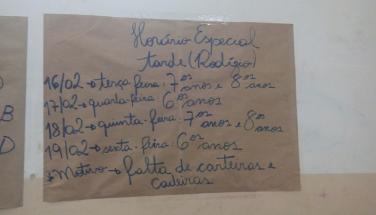 Horário Especial
tarde (Rodízio)
16/02→terça feira. 7ºs anos e 8ºs anos
17/02→quarta-feira. 6ºs anos
18/02→quinta-feira. 7ºs anos e 8ºs anos
19/02→sexta-feira. 6ºs anos
*Motivo→falta de carteiras e
cadeiras
B
D